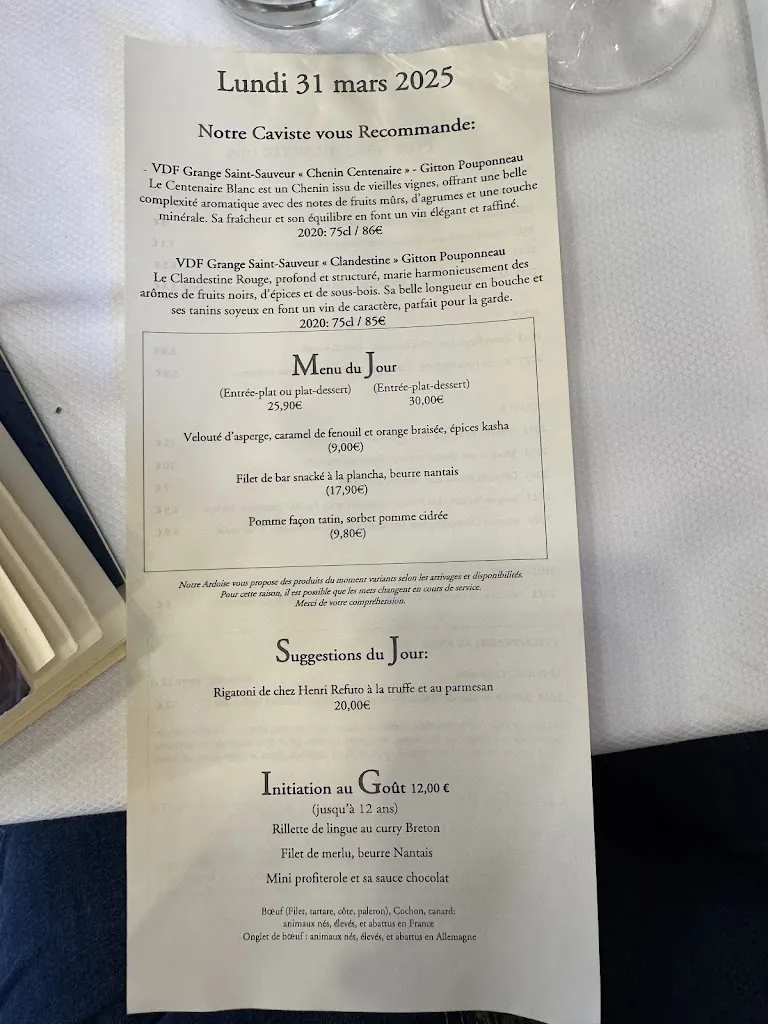 Lundi 31 mars 2025
Notre Caviste vous Recommande:
- VDF Grange Saint-Sauveur « Chenin Centenaire » - Gitton Pouponneau
Le Centenaire Blanc est un Chenin issu de vieilles vignes, offrant une belle
complexité aromatique avec des notes de fruits mûrs, d'agrumes et une touche
minérale. Sa fraîcheur et son équilibre en font un vin élégant et raffiné.
2020: 75cl / 86€
VDF Grange Saint-Sauveur « Clandestine » Gitton Pouponneau
Le Clandestine Rouge, profond et structuré, marie harmonieusement des
arômes de fruits noirs, d'épices et de sous-bois. Sa belle longueur en bouche et
ses tanins soyeux en font un vin de caractère, parfait pour la garde.
2020: 75cl / 85€
Menu du Jour
(Entrée-plat ou plat-dessert) (Entrée-plat-dessert)
25,90€ 30,00€
Velouté d'asperge, caramel de fenouil et orange braisée, épices kasha
(9,00€)
Filet de bar snacké à la plancha, beurre nantais
(17,90€)
Pomme façon tatin, sorbet pomme cidrée
(9,80€)
Notre Ardoise vous propose des produits du moment variants selon les arrivages et disponibilités.
Pour cette raison, il est possible que les mets changent en cours de service.
Merci de votre compréhension.
Suggestions du Jour:
Rigatoni de chez Henri Refuto à la truffe et au parmesan
20,00€
Initiation au Goût 12,00 €
(jusqu'à 12 ans)
Rillette de lingue au curry Breton
Filet de merlu, beurre Nantais
Mini profiterole et sa sauce chocolat
Bœuf (Filet, tartare, côte, paleron), Cochon, canard:
animaux nés, élevés, et abattus en France
Onglet de bœuf : animaux nés, élevés, et abattus en Allemagne